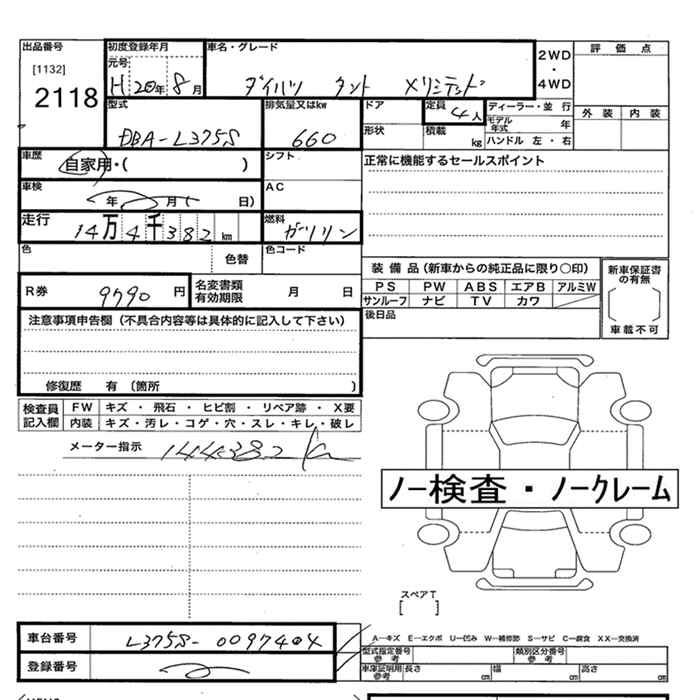 出品番号 初度登録年月 車名・グレード 2WD・4WD 評価点
[1132] 元号
2118 H 20年 8月 ダイハツ タント
型式 排気量又はkw ドア 定員 ディーラー・並行 外装 内装
DBA-L375S 660 4人 モデル年式 年
形状 積載 kg ハンドル 左・右
車歴 自家用・( ) シフト 正常に機能するセールスポイント
車検 年 月( 日) AC
走行 14万4千382km 燃料 ガソリン
色 色替 色コード
装備品(新車からの純正品に限り○印) 新車保証書の有無
R券 9790円 名変書類有効期限 月 日 PS PW ABS エアB アルミW
サンルーフ ナビ TV カワ
注意事項申告欄(不具合内容等は具体的に記入して下さい) 後日品 車載不可
修復歴 有 〔箇所 〕
検査員記入欄 FW キズ・飛石・ヒビ割・リペア跡・X要
内装 キズ・汚レ・コゲ・穴・スレ・キレ・破レ
メーター指示 144382 km
ノー検査・ノークレーム
スペアT
[ ]
車台番号 L375S-0097404 A―キズ E―エクボ U―凹み W―補修跡 S―サビ C―腐食 XX―交換済
型式指定番号参考 類別区分番号参考
登録番号 車庫証明用参考 長さ cm 幅 cm 高さ cm